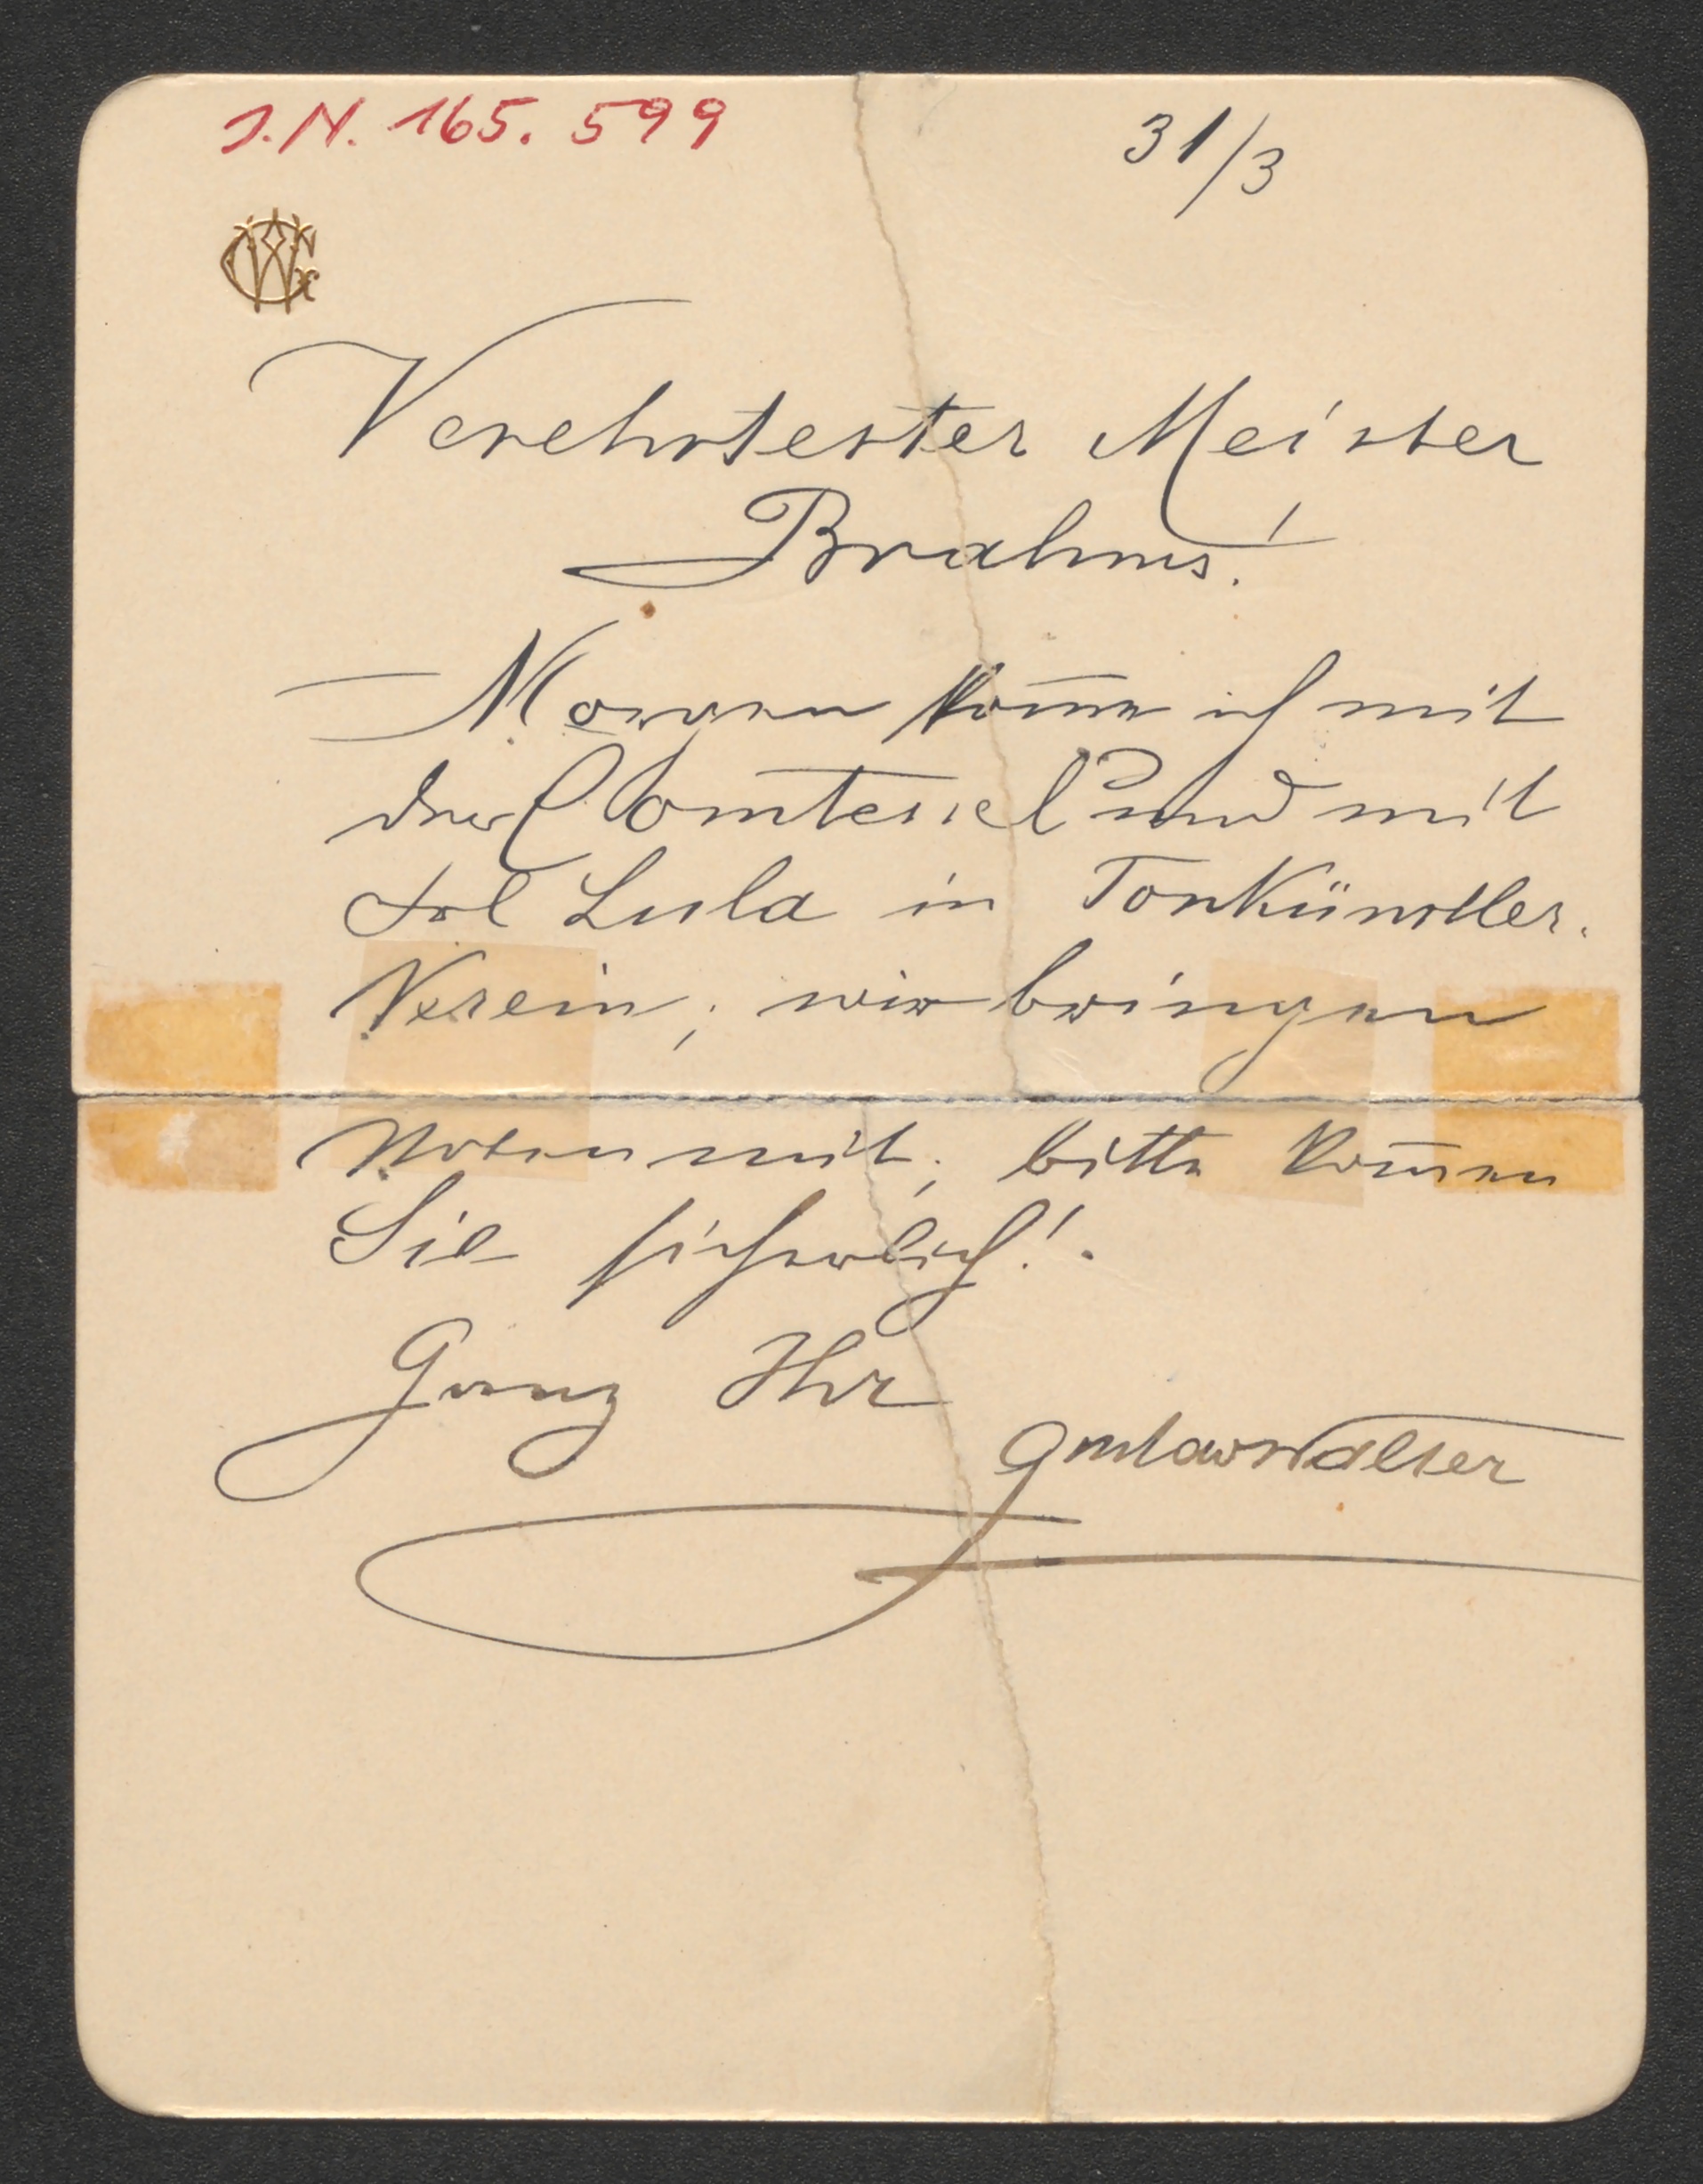 J.N. 165.599
31/3
GW
Verehrtester Meister
Brahms!
Morgen kom̅e ich mit
der Comtessel und mit
Frl Lula in Tonkünstler.
Verein; wir bringen
Noten mit; bitte kom̅en
Sie sicherlich!.
Ganz Ihr
Gustav Walter